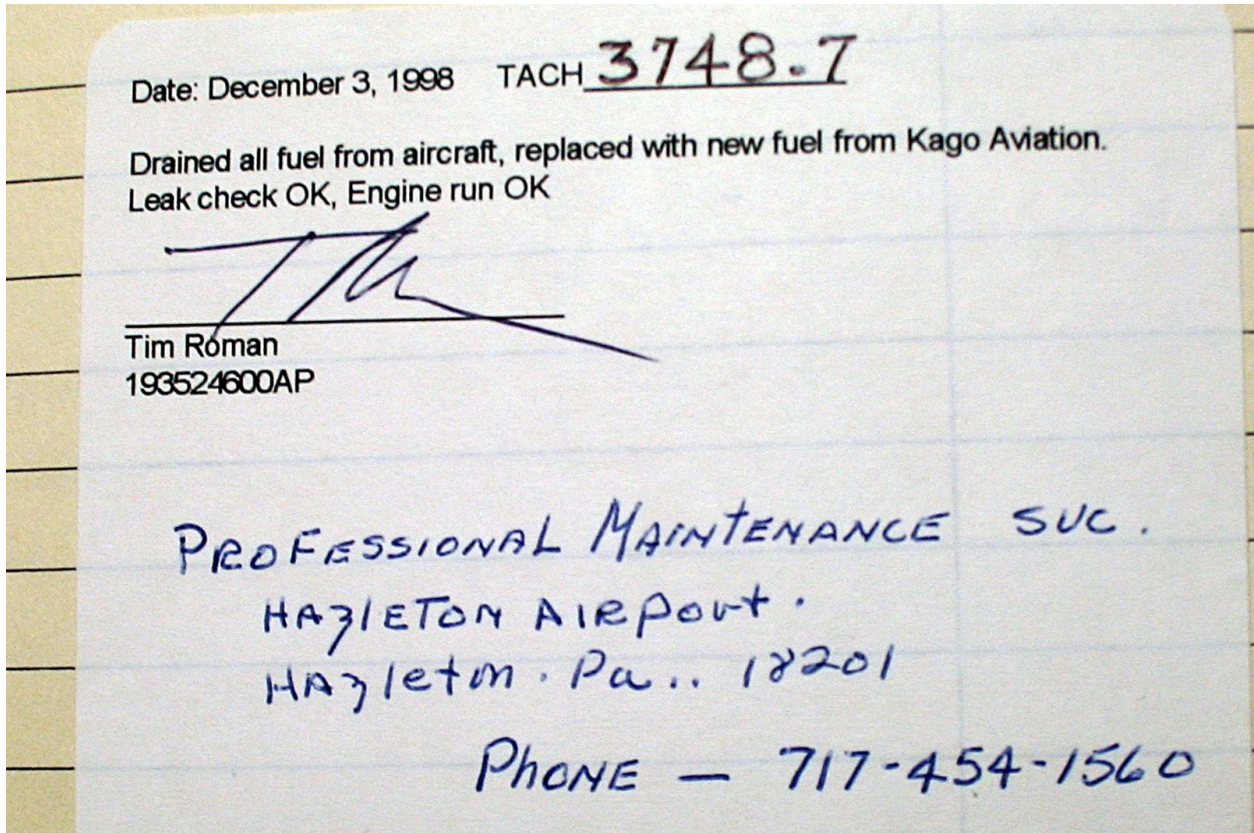 Date: December 3, 1998 TACH 3748.7
Drained all fuel from aircraft, replaced with new fuel from Kago Aviation.
Leak check OK, Engine run OK
Tim Roman
193524600AP
PROFESSIONAL MAINTENANCE SVC.
HAZLETON AIRPort.
HAZleton. Pa.. 18201
PhONE — 717-454-1560